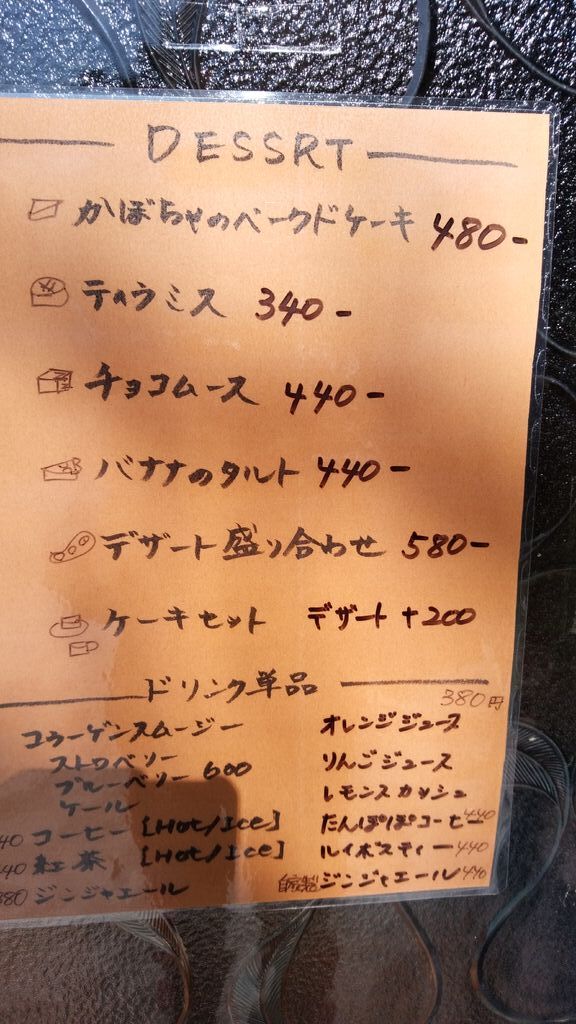 DESSRT
かぼちゃのベークドケーキ 480-
ティラミス 340-
チョコムース 440-
バナナのタルト 440-
デザート盛り合わせ 580-
ケーキセット デザート+200
ドリンク単品
380円
コラーゲンスムージー
ストロベリー
ブルーベリー 600
ケール
40 コーヒー [Hot/Ice]
40 紅茶 [Hot/Ice]
380 ジンジャエール
オレンジジュース
りんごジュース
レモンスカッシュ
たんぽぽコーヒー 440
ルイボスティー 440
自家製 ジンジャエール 440